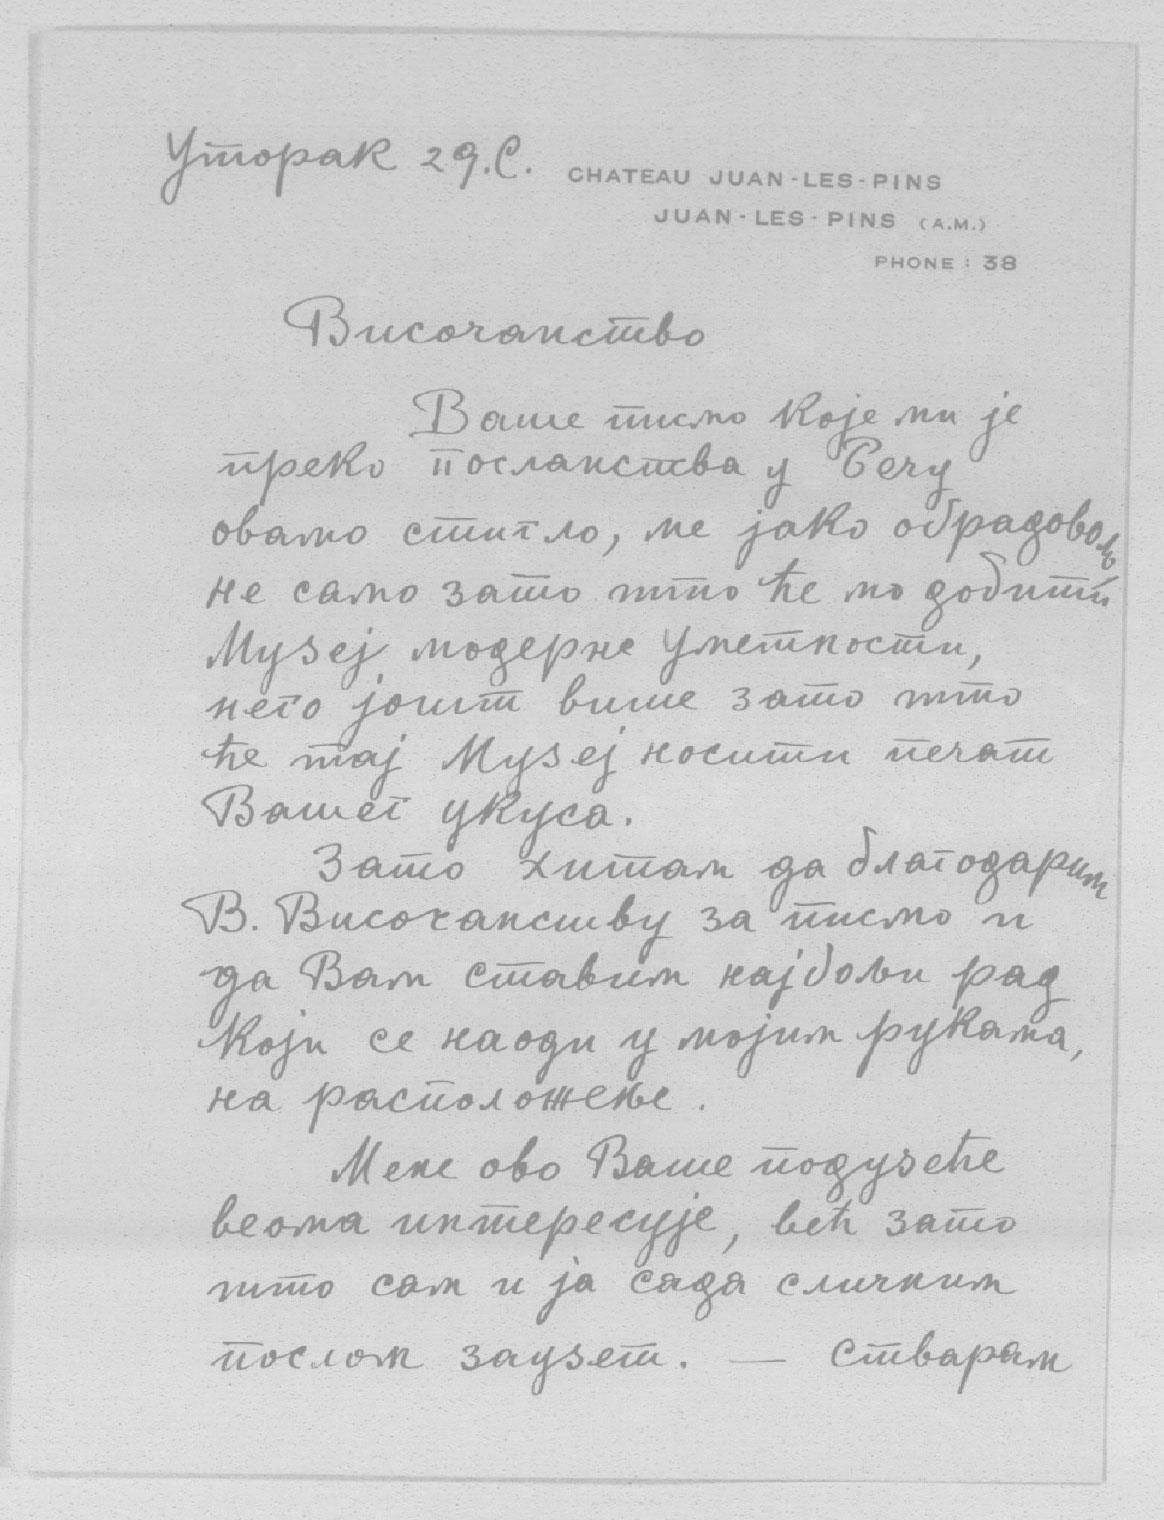 Уторак 29.С.
CHATEAU JUAN-LES-PINS
JUAN-LES-PINS (A.M.)
PHONE : 38
Височанство
Ваше писмо које ми је
преко посланства у Бечу
овамо стигло, ме јако обрадовало
не само зато што ће мо добити
Музеј модерне Уметности,
него јошт више зато што
ће тај Музеј носити печат
Вашег укуса.
Зато хитам да благодарим
В. Височанству за писмо и
да Вам ставим најбољи рад
који се наоди у мојим рукама,
на расположење.
Мене ово Ваше подузеће
веома интересује, већ зато
што сам и ја сада сличним
послом заузет. — Стварам